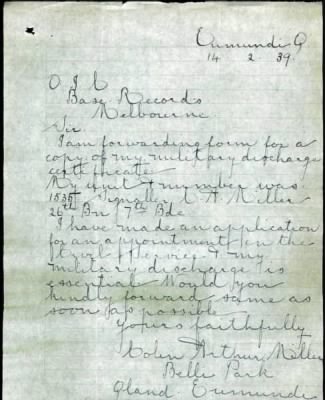 Eumundi Q
14 2 39
O I C
Base Records
Melbourne
Sir
I am forwarding form for a
copy of my military discharge
certificate
My unit & number was
Signaller C A Miller
26th Bn 7th Bde
I have made an application
for an appointment in the
& my
military discharge is
essential Would you
kindly forward same as
soon as possible
Yours faithfully
Colin Arthur Miller
Belli Park
Eumundi